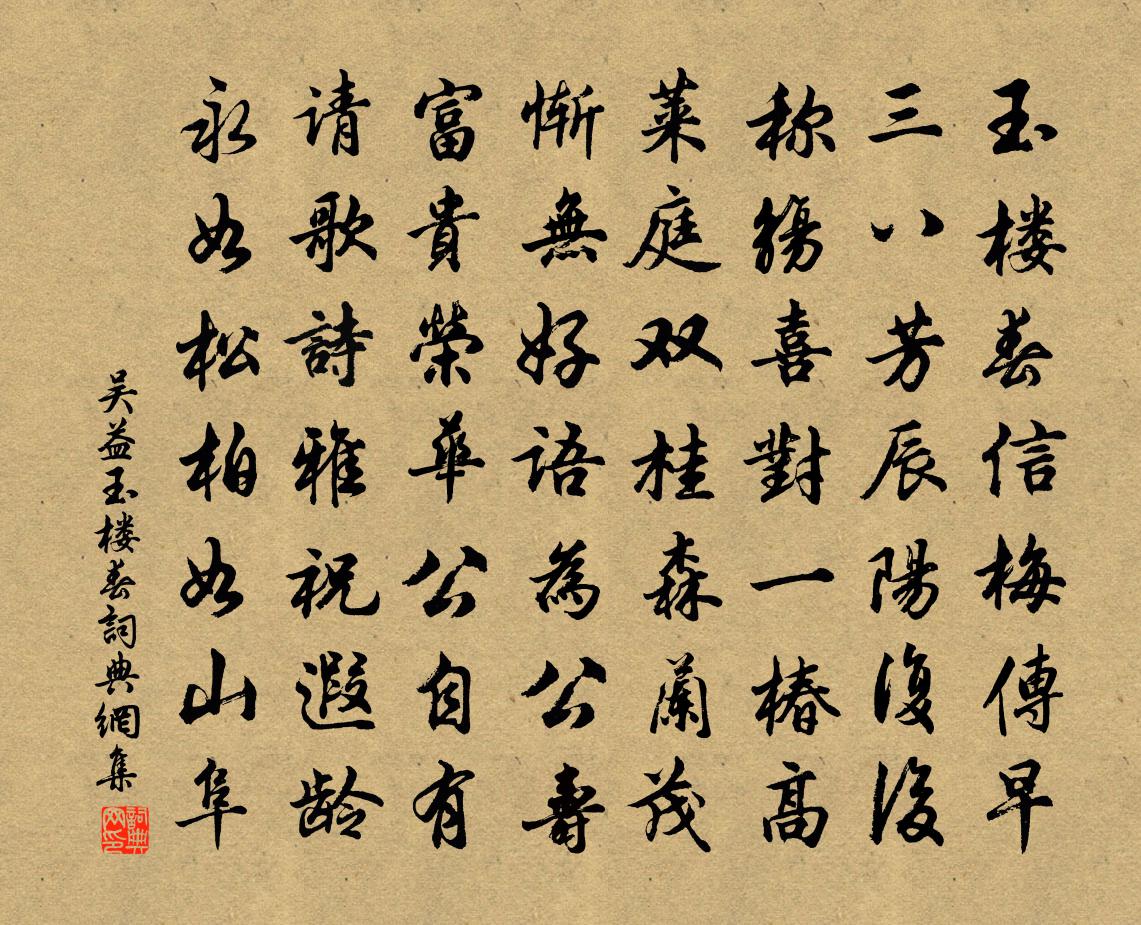 玉楼春信梅傳早
三八芳辰陽復後
称觴喜對一椿高
莱庭双桂森蘭茂
慚無好语為公壽
富貴榮華公自有
请歌詩雅祝遐龄
永如松柏如山阜
吴益玉楼春詞典網集
詞典网印